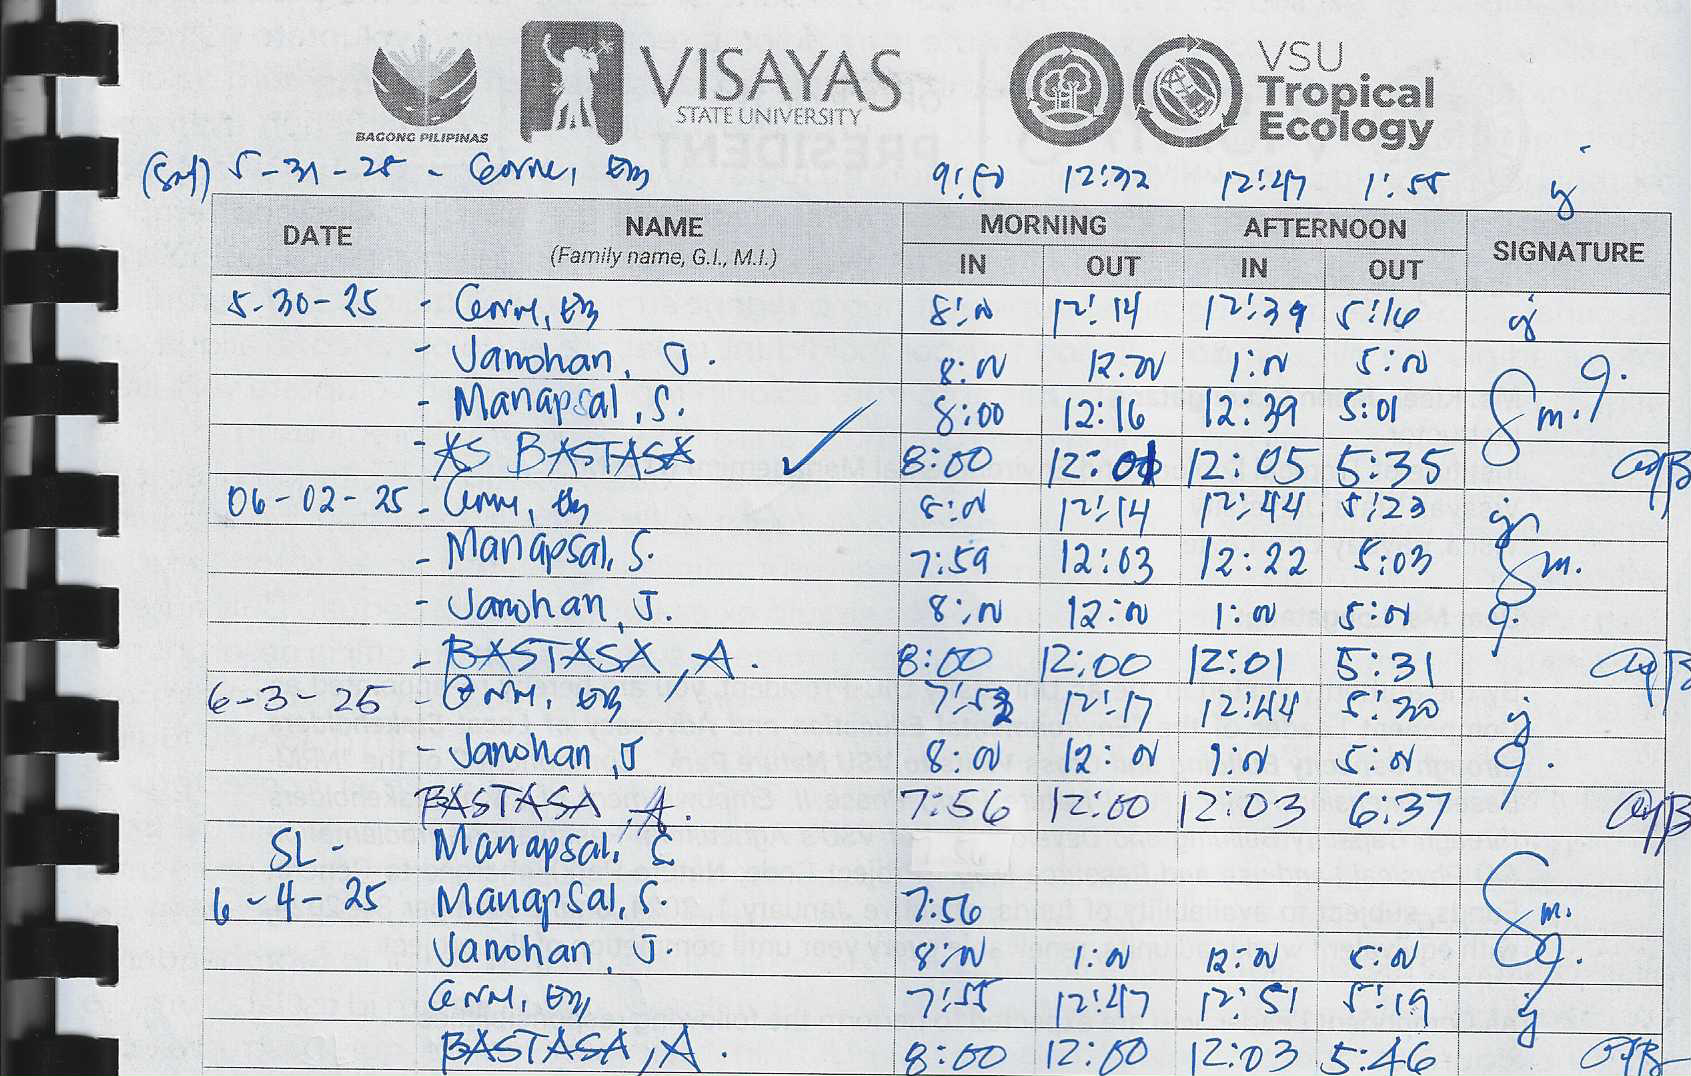 BAGONG PILIPINAS
VISAYAS
STATE UNIVERSITY
VSU
Tropical
Ecology
(Sat) 5-31-25 - 12:32 12:47 1:55
DATE NAME MORNING AFTERNOON SIGNATURE
(Family name, G.I., M.I.) IN OUT IN OUT
5-30-25 - 8:00 12:14 12:39 5:16
- Janohan, J. 8:00 12:00 1:00 5:00
- Manapsal, S. 8:00 12:16 12:39 5:01 Sm.
- AS BASTASA ✓ 8:00 12:01 12:05 5:35
06-02-25 - 8:00 12:14 12:44 5:23
- Manapsal, S. 7:59 12:03 12:22 5:03 Sm.
- Janohan, J. 8:00 12:00 1:00 5:00
- BASTASA, A. 8:00 12:00 12:01 5:31
6-3-25 - 12:17 12:44 5:30
- Janohan, J 8:00 12:00 1:00 5:00
BASTASA, A. 7:56 12:00 12:03 6:37
SL - Manapsal, S.
6-4-25 Manapsal, S. 7:56 Sm.
Janohan, J. 8:00 1:00 12:00 5:00
7:55 12:47 12:51 5:19
BASTASA, A. 8:00 12:00 12:03 5:46